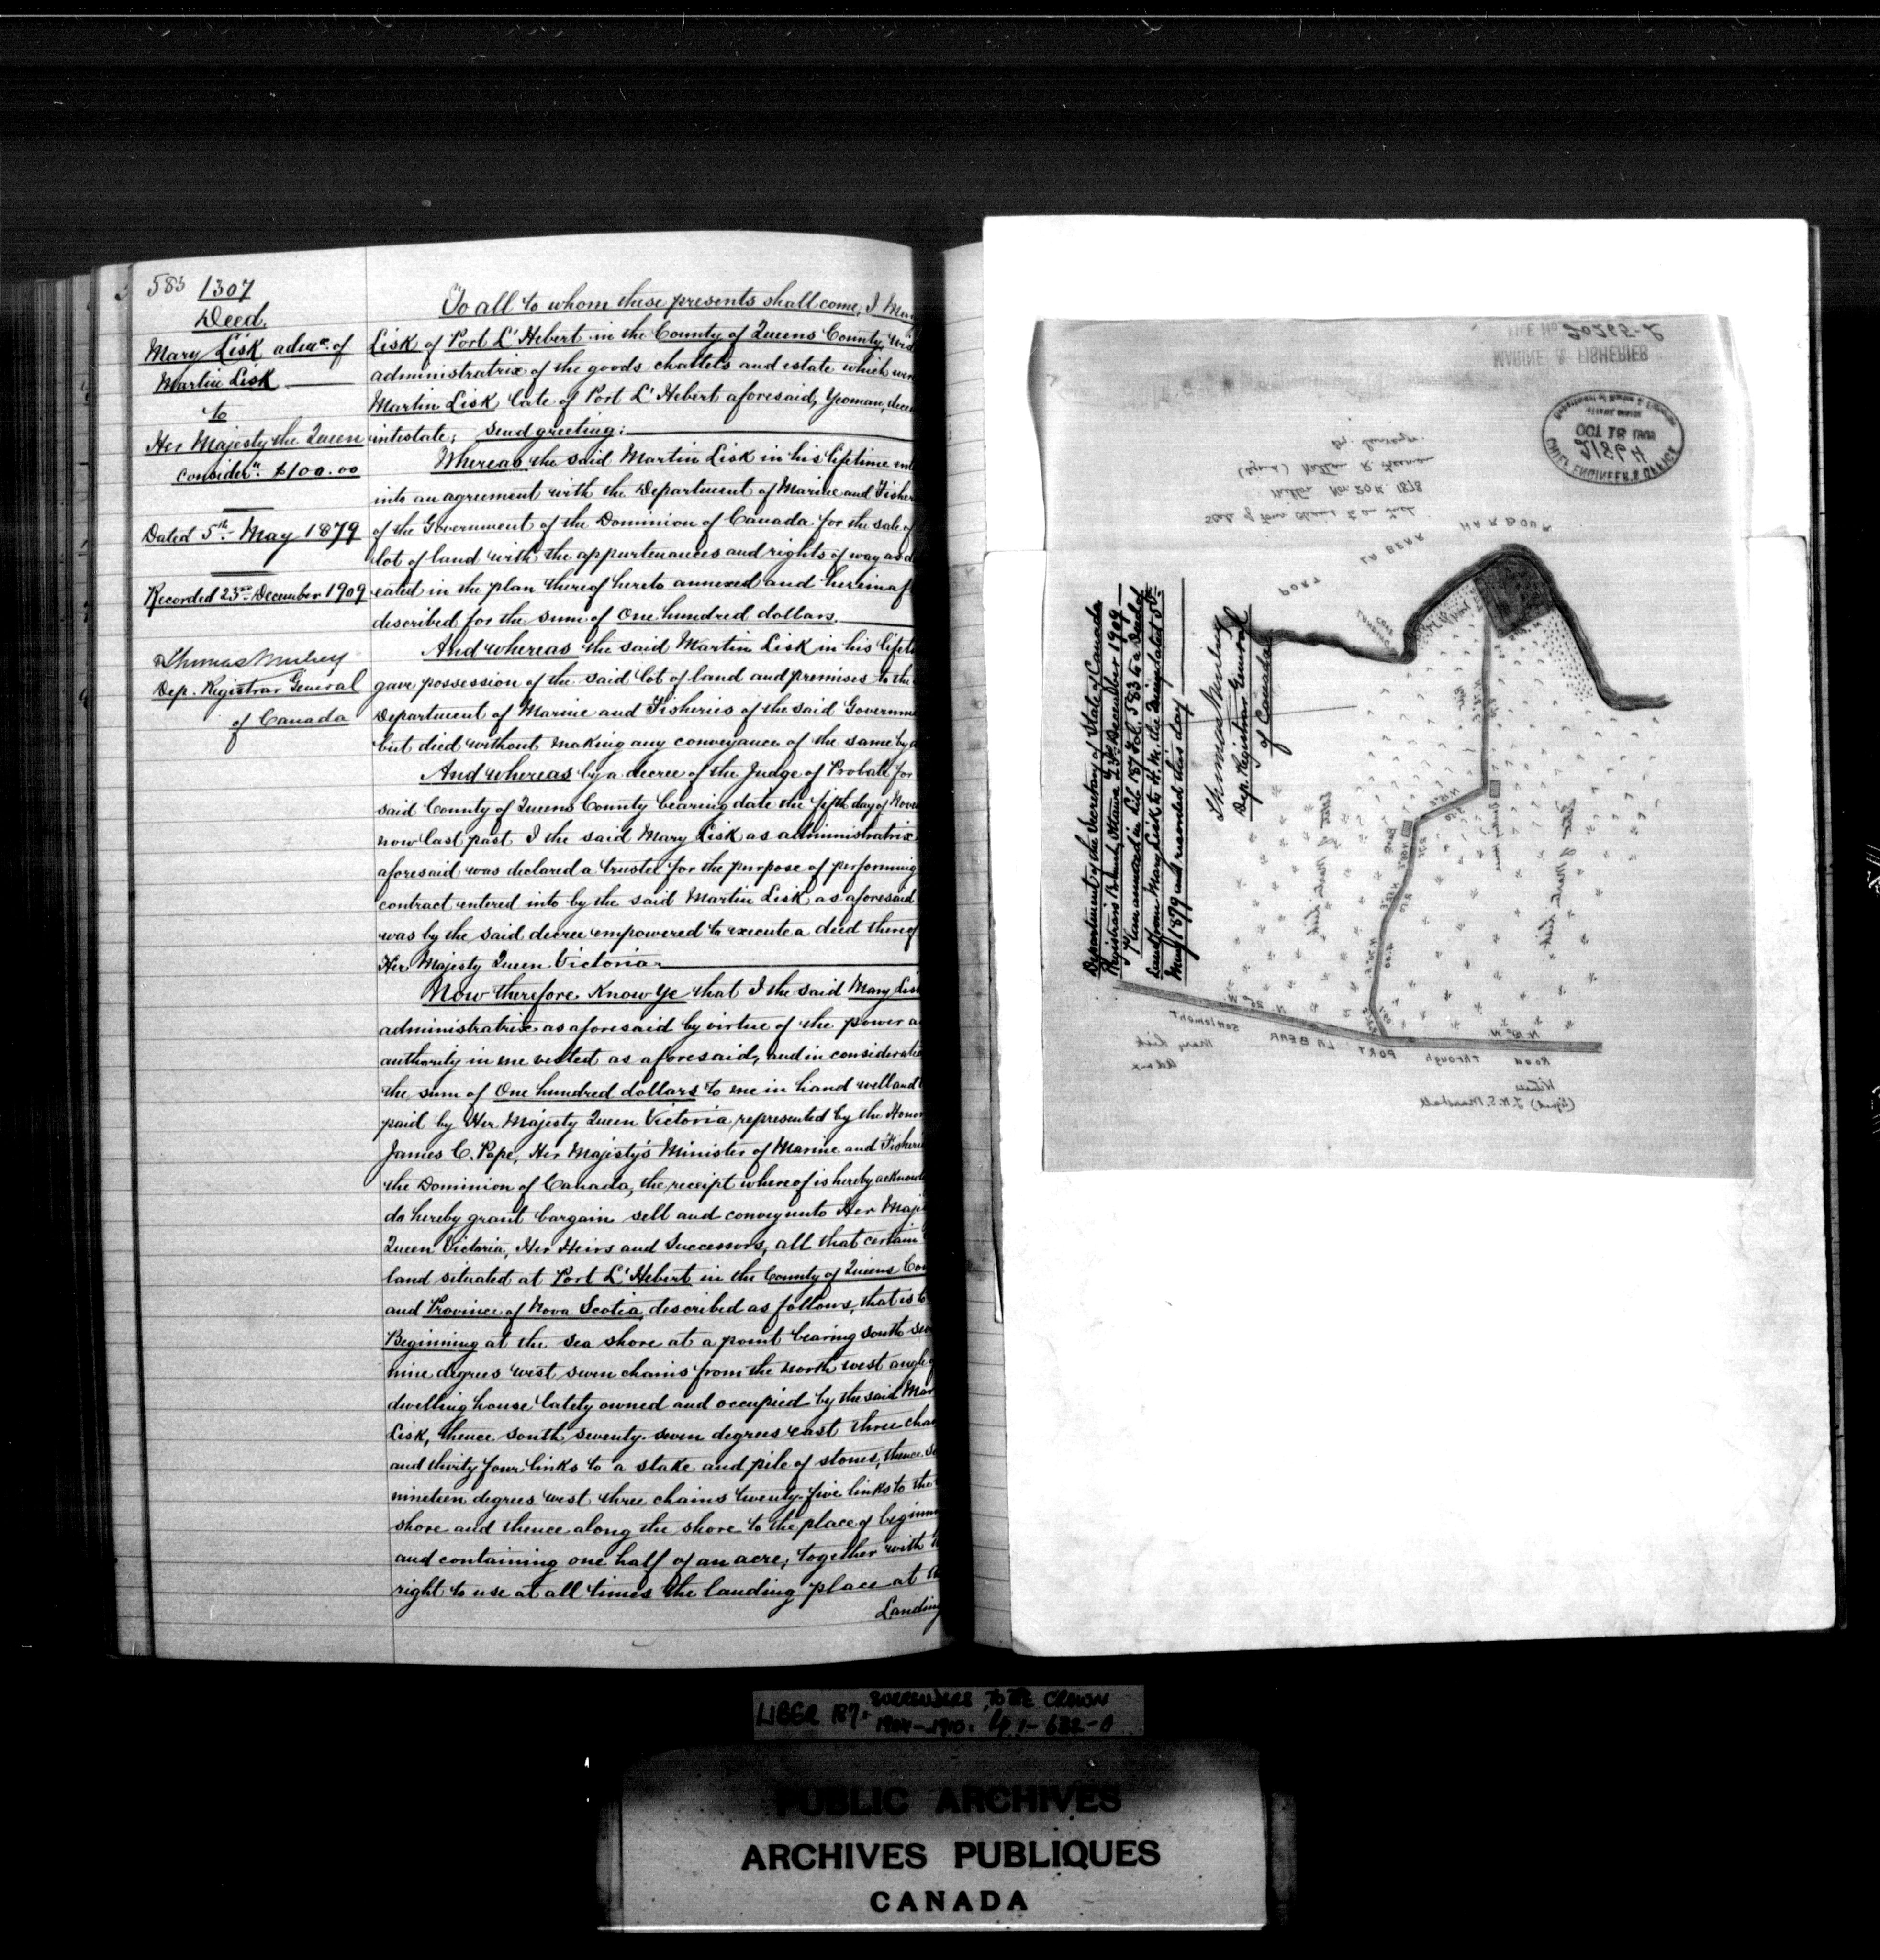 583 1307
Deed.
Mary Lisk admx. of
Martin Lisk
to
Her Majesty the Queen
Considern. $100.00
Dated 5th May 1879
Recorded 23rd December 1909
Thomas Mulvey
Dep. Registrar General
of Canada
To all to whom these presents shall come, I Mar
Lisk of Port L'Hebert in the County of Queens County, Wid
administratrix of the goods chattels and estate which wer
Martin Lisk late of Port L'Hebert aforesaid, Yeoman, dece
intestate; send greeting:
Whereas the said Martin Lisk in his lifetime
into an agreement with the Department of Marine and Fisher
of the Government of the Dominion of Canada for the sale of
lot of land with the appurtenances and rights of way as d
eated in the plan thereof hereto annexed and hereinaf
described for the sum of One hundred dollars.
And whereas the said Martin Lisk in his lifeti
gave possession of the said lot of land and premises to the
Department of Marine and Fisheries of the said Governme
but died without making any conveyance of the same by
And whereas by a decree of the Judge of Probate for
said County of Queens County bearing date the fifth day of Nove
now last past I the said Mary Lisk as administratrix
aforesaid was declared a trustee for the purpose of performing
contract entered into by the said Martin Lisk as aforesaid
was by the said decree empowered to execute a deed thereof
Her Majesty Queen Victoria.
Now therefore Know Ye that I the said Mary Lis
administratrix as aforesaid by virtue of the power a
authority in me vested as aforesaid, and in consideratio
the sum of One hundred dollars to me in hand well and
paid by Her Majesty Queen Victoria, represented by the Honor
James C. Pope, Her Majesty's Minister of Marine and Fisheri
the Dominion of Canada, the receipt whereof is hereby acknowl
do hereby grant bargain sell and convey unto Her Maje
Queen Victoria, Her Heirs and Successors, all that certain
land situated at Port L'Hebert in the County of Queens Cou
and Province of Nova Scotia, described as follows, that is to
Beginning at the sea shore at a point bearing South sev
nine degrees west seven chains from the north west angle of
dwelling house lately owned and occupied by the said Mar
Lisk, thence south seventy-seven degrees east three chai
and thirty four links to a stake and pile of stones, thence S
nineteen degrees west three chains twenty-five links to the
shore and thence along the shore to the place of beginni
and containing one half of an acre; together with
right to use at all times the landing place at
Landing
FILE No. 20265-L
MARINE & FISHERIES
Department of Marine & Fisheries
OCT 18 1909
21864
CHIEF ENGINEER'S OFFICE
Scale of Four Chains to an Inch
Milton Nov. 20th. 1878
(Signed) Nathan R. Freeman
Dy. Surveyor
PORT LA BEAR HARBOUR
COVE LANDING
Dwelling House
Barn
Estate of Martin Lisk
Estate of Martin Lisk
Department of the Secretary of State of Canada
Registrar's Branch, Ottawa 23rd December 1909
Plan annexed in Lib 187 Fol. 583 to a Deed of
Land from Mary Lisk to H. M. the Queen dated 5th
May 1879 and recorded this day
Thomas Mulvey
Dep. Registrar General
of Canada
N. 25° W.
N. 10° W.
Road Through PORT LA BEAR Settlement
Mary Lisk
Admx
Witness
(Signed) J. N. S. Marshall
LIBER 187. SURRENDERS TO THE CROWN
PUBLIC ARCHIVES
ARCHIVES PUBLIQUES
CANADA